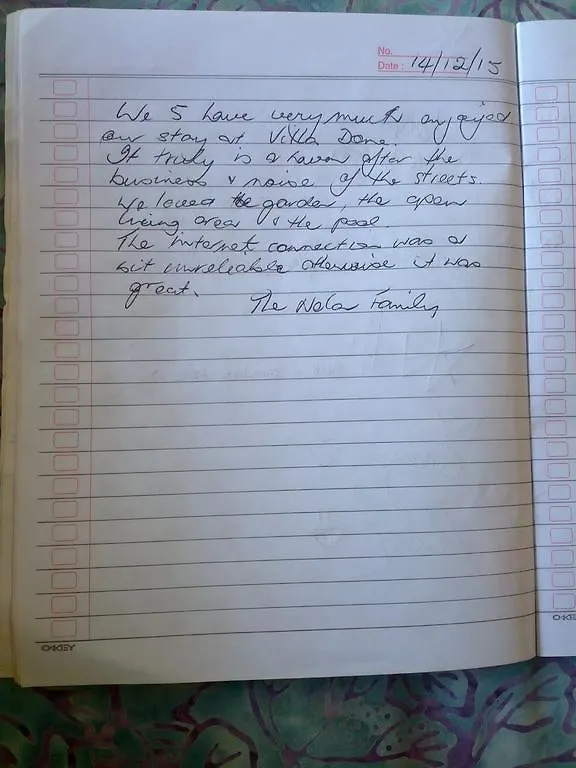 No.
Date: 14/12/15
We 5 have very much enjoyed
our stay at Villa Dona.
It truly is a haven after the
business & noise of the streets.
We loved the garden, the open
living area & the pool.
The internet connection was a
bit unreleable otherwise it was
great.
The Family
OKEY
OKEY